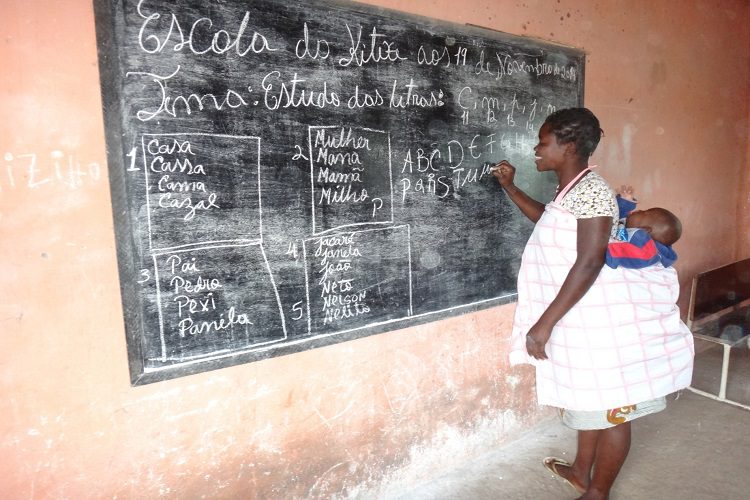 Escola do Kitixi aos 19 de Novembro de
Tema: Estudo das letras: C, m, p, j, n
11 12 13 14
1 Casa
Cassa
Cama
Cazal
2 Mulher
Mamã
Mamã
Milho
P
ABCDEFGH
PQRSTUV
3 Pai
Pedro
Pexi
Panéla
4 Jacaré
Janela
João
5 Neto
Nelson
Nelito